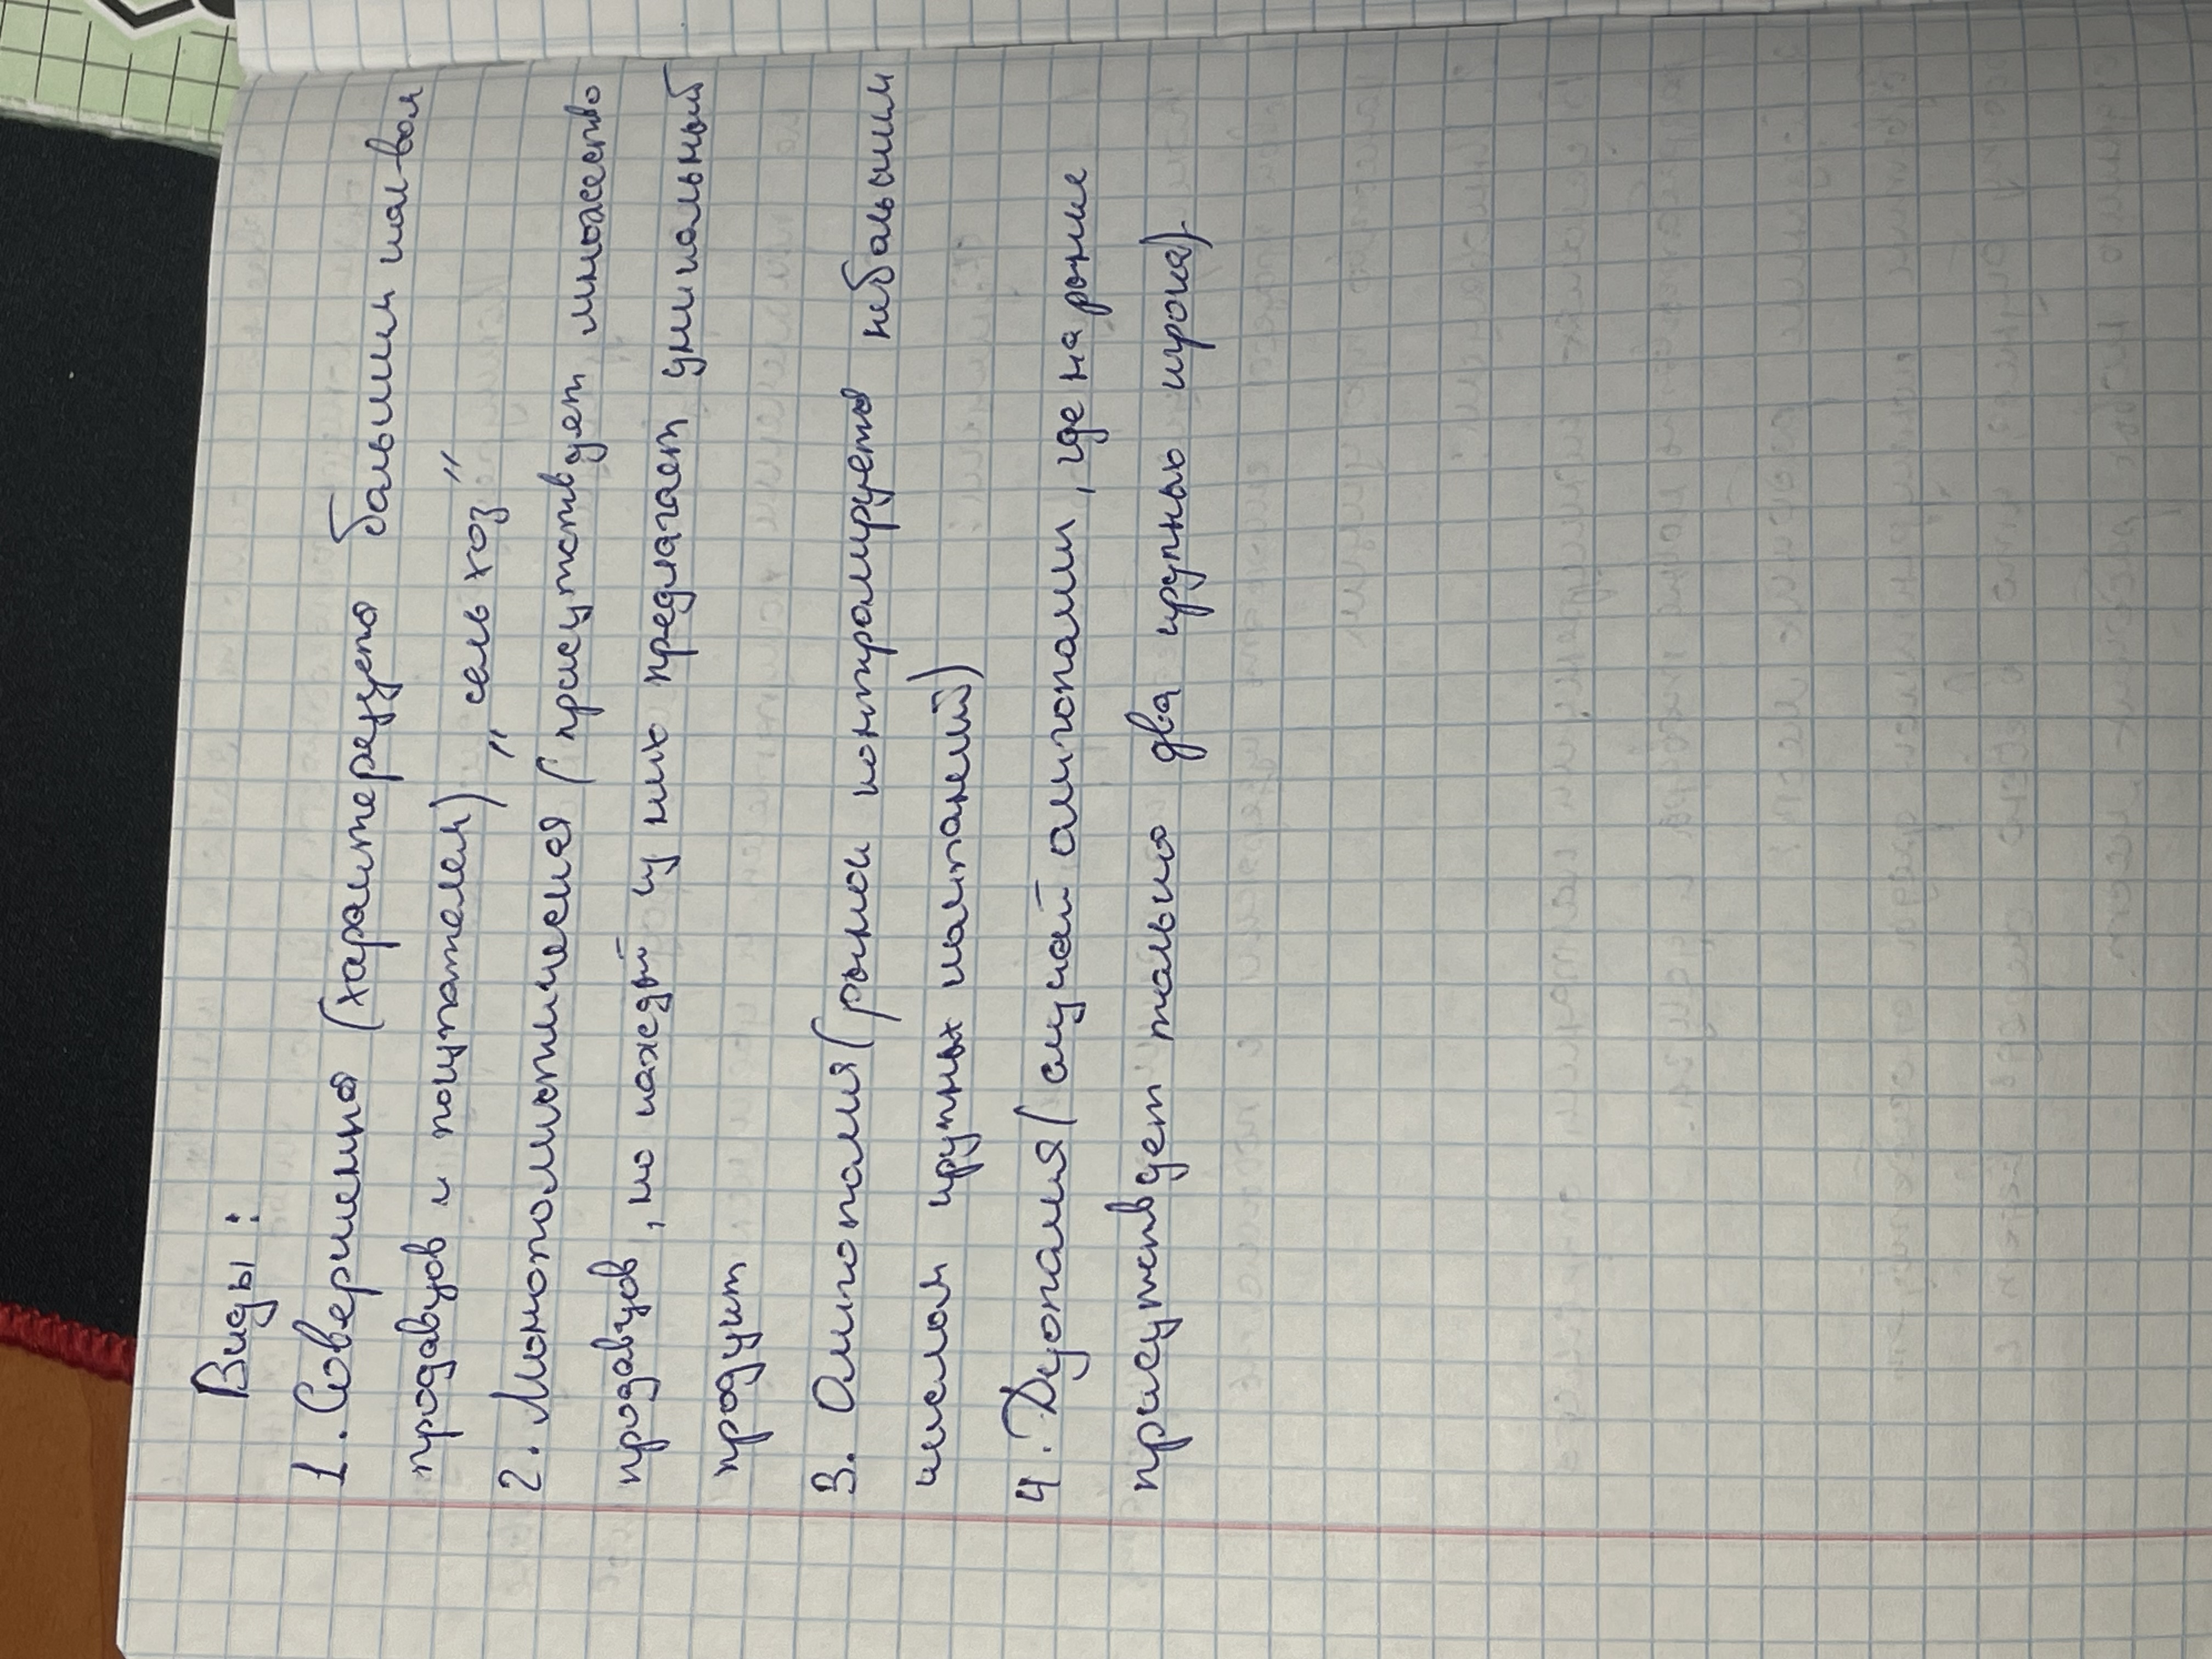 Виды:
1. Совершенная (характерезуется большим кол-вом
продавцов и покупателем) "сель хоз"
2. Монополистическая (присутствует множество
продавцов, но каждый из них предлагает уникальный
продукт
3. Олигополия (рынок контролируется небольшим
числом крупных компаний)
4. Дуополия (случай олигополии, где на рынке
присутствует только два крупных игрока).